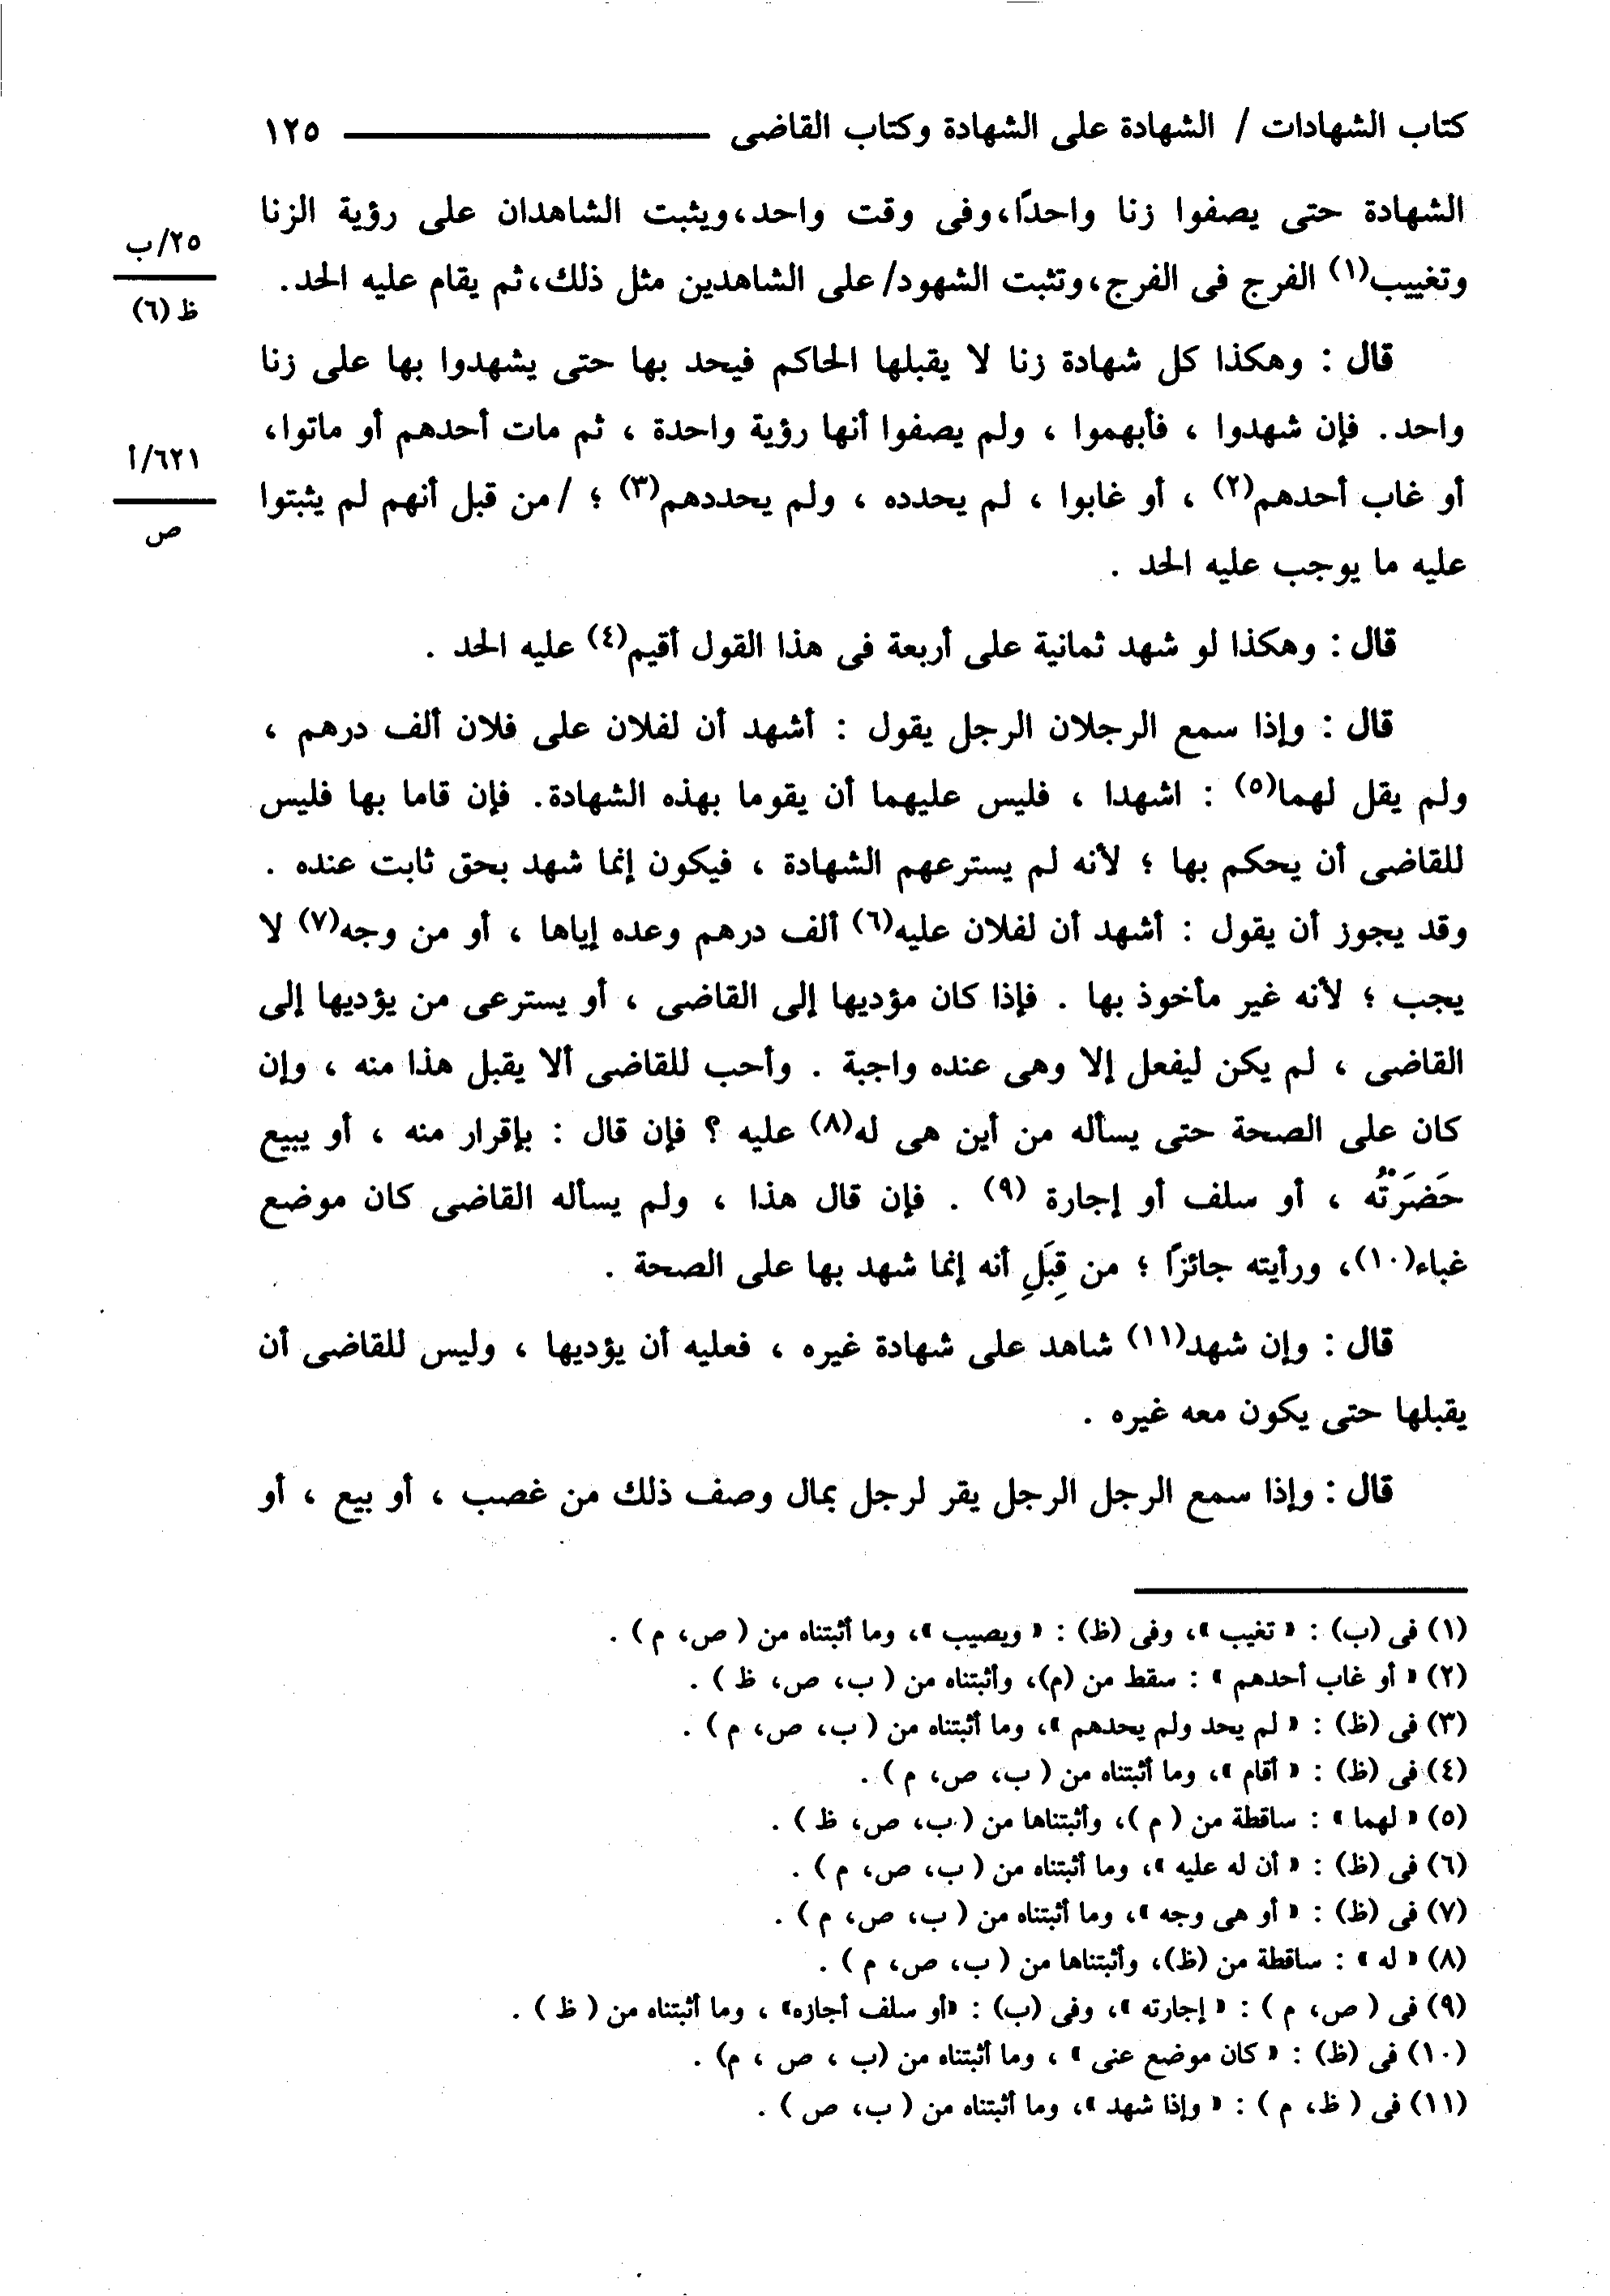 كتاب الشهادات / الشهادة على الشهادة وكتاب القاضى ــــــــ ١٢٥
الشهادة حتى يصفوا زنا واحدًا،وفى وقت واحد،ويثبت الشاهدان على رؤية الزنا
٢٥/ب
وتغييب(١) الفرج فى الفرج،وتثبت الشهود/على الشاهدين مثل ذلك،ثم يقام عليه الحد.
ظ (٦)
قال : وهكذا كل شهادة زنا لا يقبلها الحاكم فيحد بها حتى يشهدوا بها على زنا
واحد. فإن شهدوا ، فأبهموا ، ولم يصفوا أنها رؤية واحدة ، ثم مات أحدهم أو ماتوا،
٦٢١/أ
أو غاب أحدهم(٢) ، أو غابوا ، لم يحدده ، ولم يحددهم(٣) ؛ /من قبل أنهم لم يثبتوا
ص
عليه ما يوجب عليه الحد .
قال : وهكذا لو شهد ثمانية على أربعة فى هذا القول أقيم(٤) عليه الحد .
قال : وإذا سمع الرجلان الرجل يقول : أشهد أن لفلان على فلان ألف درهم ،
ولم يقل لهما(٥) : اشهدا ، فليس عليهما أن يقوما بهذه الشهادة. فإن قاما بها فليس
للقاضى أن يحكم بها ؛ لأنه لم يسترعهم الشهادة ، فيكون إنما شهد بحق ثابت عنده .
وقد يجوز أن يقول : أشهد أن لفلان عليه(٦) ألف درهم وعده إياها ، أو من وجه(٧) لا
يجب ؛ لأنه غير مأخوذ بها . فإذا كان مؤديها إلى القاضى ، أو يسترعى من يؤديها إلى
القاضى ، لم يكن ليفعل إلا وهى عنده واجبة . وأحب للقاضى ألا يقبل هذا منه ، وإن
كان على الصحة حتى يسأله من أين هى له(٨) عليه ؟ فإن قال : بإقرار منه ، أو يبيع
حَضَرْتُه ، أو سلف أو إجارة (٩) . فإن قال هذا ، ولم يسأله القاضى كان موضع
غباء(١٠)، ورأيته جائزًا ؛ من قِبَلِ أنه إنما شهد بها على الصحة .
قال : وإن شهد(١١) شاهد على شهادة غيره ، فعليه أن يؤديها ، وليس للقاضى أن
يقبلها حتى يكون معه غيره .
قال : وإذا سمع الرجل الرجل يقر لرجل بمال وصف ذلك من غصب ، أو بيع ، أو
(١) فى (ب) : « تغيب »، وفى (ظ) : « ويصيب »، وما أثبتناه من ( ص، م ) .
(٢) « أو غاب أحدهم » : سقط من (م)، وأثبتناه من ( ب، ص، ظ ) .
(٣) فى (ظ) : « لم يحد ولم يحدهم »، وما أثبتناه من ( ب، ص، م ) .
(٤) فى (ظ) : « أقام »، وما أثبتناه من ( ب، ص، م ) .
(٥) « لهما » : ساقطة من ( م )، وأثبتناها من ( ب، ص، ظ ) .
(٦) فى (ظ) : « أن له عليه »، وما أثبتناه من ( ب، ص، م ) .
(٧) فى (ظ) : « أو هى وجه »، وما أثبتناه من ( ب، ص، م ) .
(٨) « له » : ساقطة من (ظ)، وأثبتناها من ( ب، ص، م ) .
(٩) فى ( ص، م ) : « إجارته »، وفى (ب) : «أو سلف أجازه» ، وما أثبتناه من ( ظ ) .
(١٠) فى (ظ) : « كان موضع عنى » ، وما أثبتناه من (ب ، ص ، م) .
(١١) فى ( ظ، م ) : « وإذا شهد »، وما أثبتناه من ( ب، ص ) .